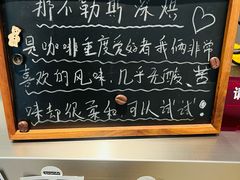 那不勒斯深焙
是咖啡重度爱好者我俩非常
喜欢的风味,几乎无酸、苦
味却很柔和,可以试试!
请